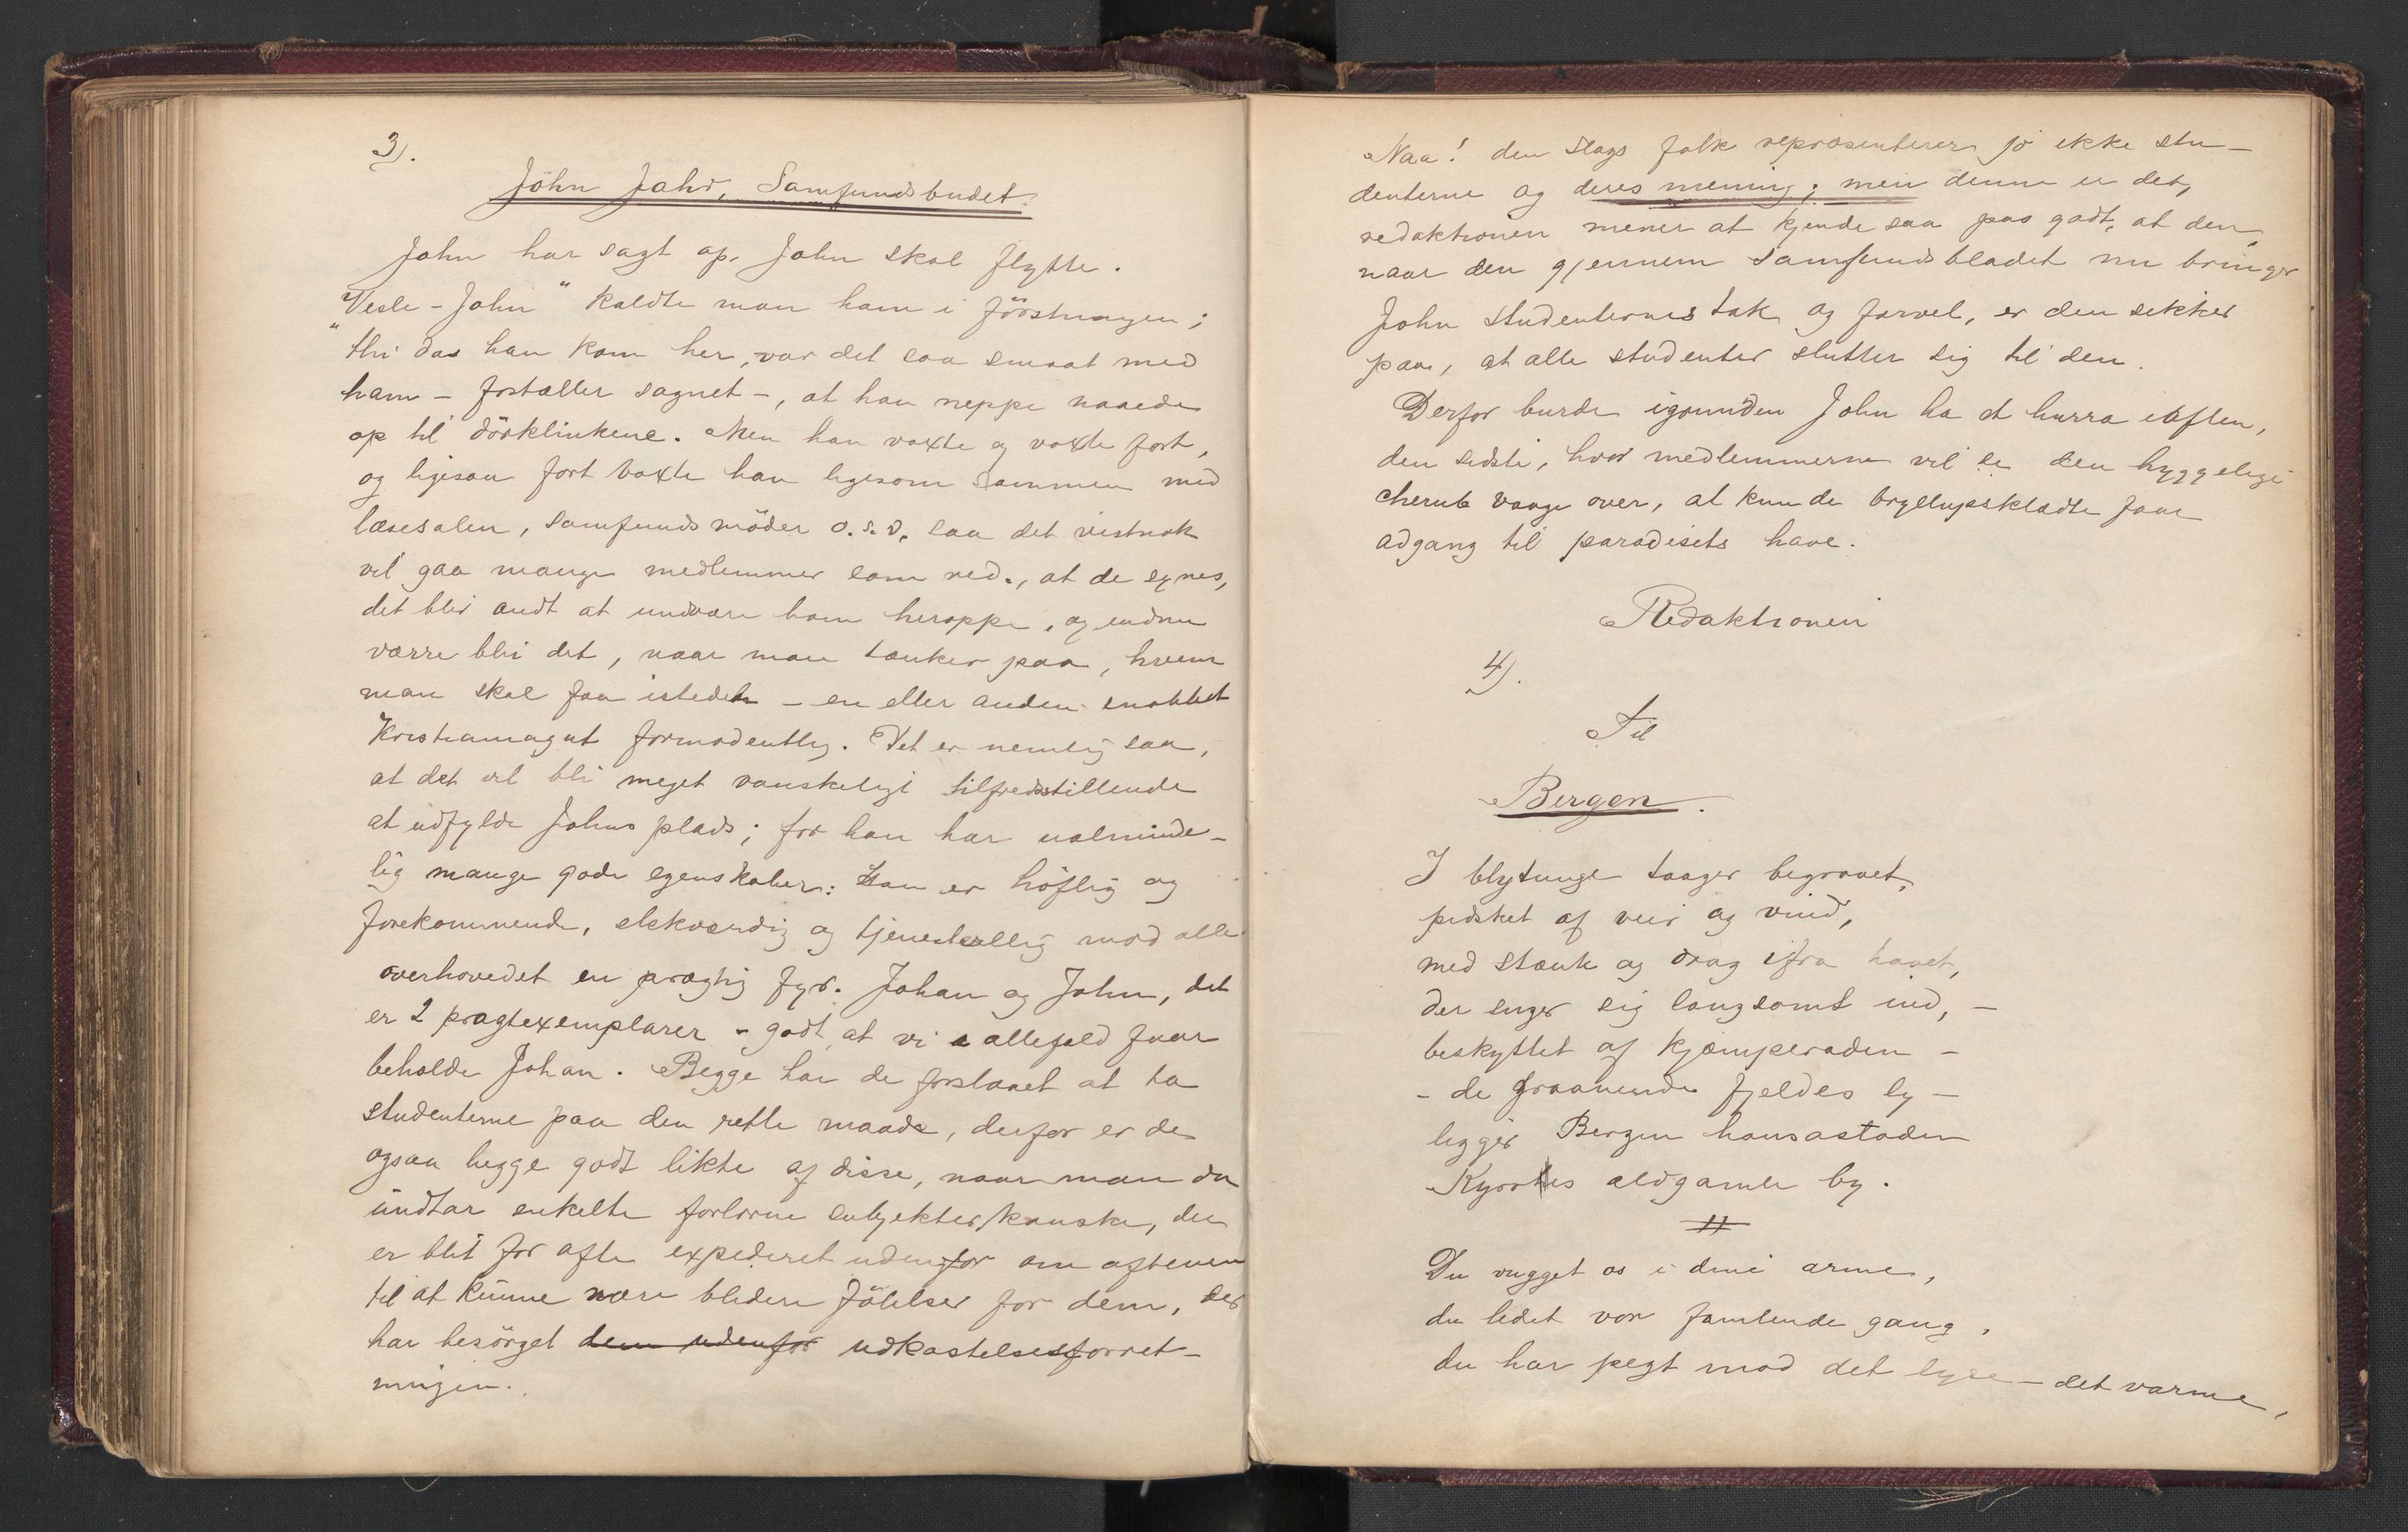 3).
John Jahr, Samfundsbudet.
John har sagt op, John skal flytte.
"Vesle-John" kaldte man ham i förstningen;
thi da han kom her, var det saa smaat med
ham - fortæller sagnet -, at han neppe naaede
op til dörklinkene. Men han voxte og voxte fort,
og ligesaa fort voxte han ligesom sammen med
læsesalen, samfundsmöder o.s.v. saa det vistnok
vil gaa mange medlemmer som red., at de synes,
det blir ondt at undvære ham heroppe, og endnu
værre blir det, naar man tænker paa, hvem
man skal faa isteden - en eller anden snobbet
Kristianiagut formodentlig. Det er nemlig saa,
at det vil bli meget vanskeligt tilfredsstillende
at udfylde Johns plads; for han har ualminde-
lig mange gode egenskaber: Han er höflig og
forekommende, elskværdig og tjenestvillig mod alle
overhovedet en prægtig fyr. Johan og John, det
er 2 pragtexemplarer - godt, at vi allefald faar
beholde Johan. Begge har de forstaaet at ta
studenterne paa den rette maade, derfor er de
ogsaa begge godt likte af disse, naar man da
undtar enkelte forlorne subjekter, kanske, der
er blit for ofte expederet udenfor om aftenen
til at kunne nære blidere fölelser for dem, der
har besörget dem udenfor udkastelsesforret-
ningen.
Naa! den slags folk repræsenterer jo ikke stu-
denterne og deres mening; men denne er det,
redaktionen mener at kjende saa pas godt, at den,
naar den gjennem Samfundsbladet nu bringer
John studenternes tak og farvel, er den sikker
paa, at alle studenter slutter sig til den.
Derfor burde igrunden John ha et hurra iaften,
den sidste, hvor medlemmerne vil se den hyggelige
cherub vaage over, at kun de bryllupsklædte faar
adgang til paradisets have.
Redaktionen
4).
Til
Bergen.
I blytunge taager begravet,
pidsket af veir og vind,
med stænk og drag ifra havet,
der suger sig langsomt ind, -
beskyttet af kjæmperaden -
- de graanende fjeldes ly -
ligger Bergen hansastaden
Kyrres ældgamle by.
#
Du vugget os i dine arme,
du ledet vor famlende gang,
du har pegt mod det lyse - det varme,